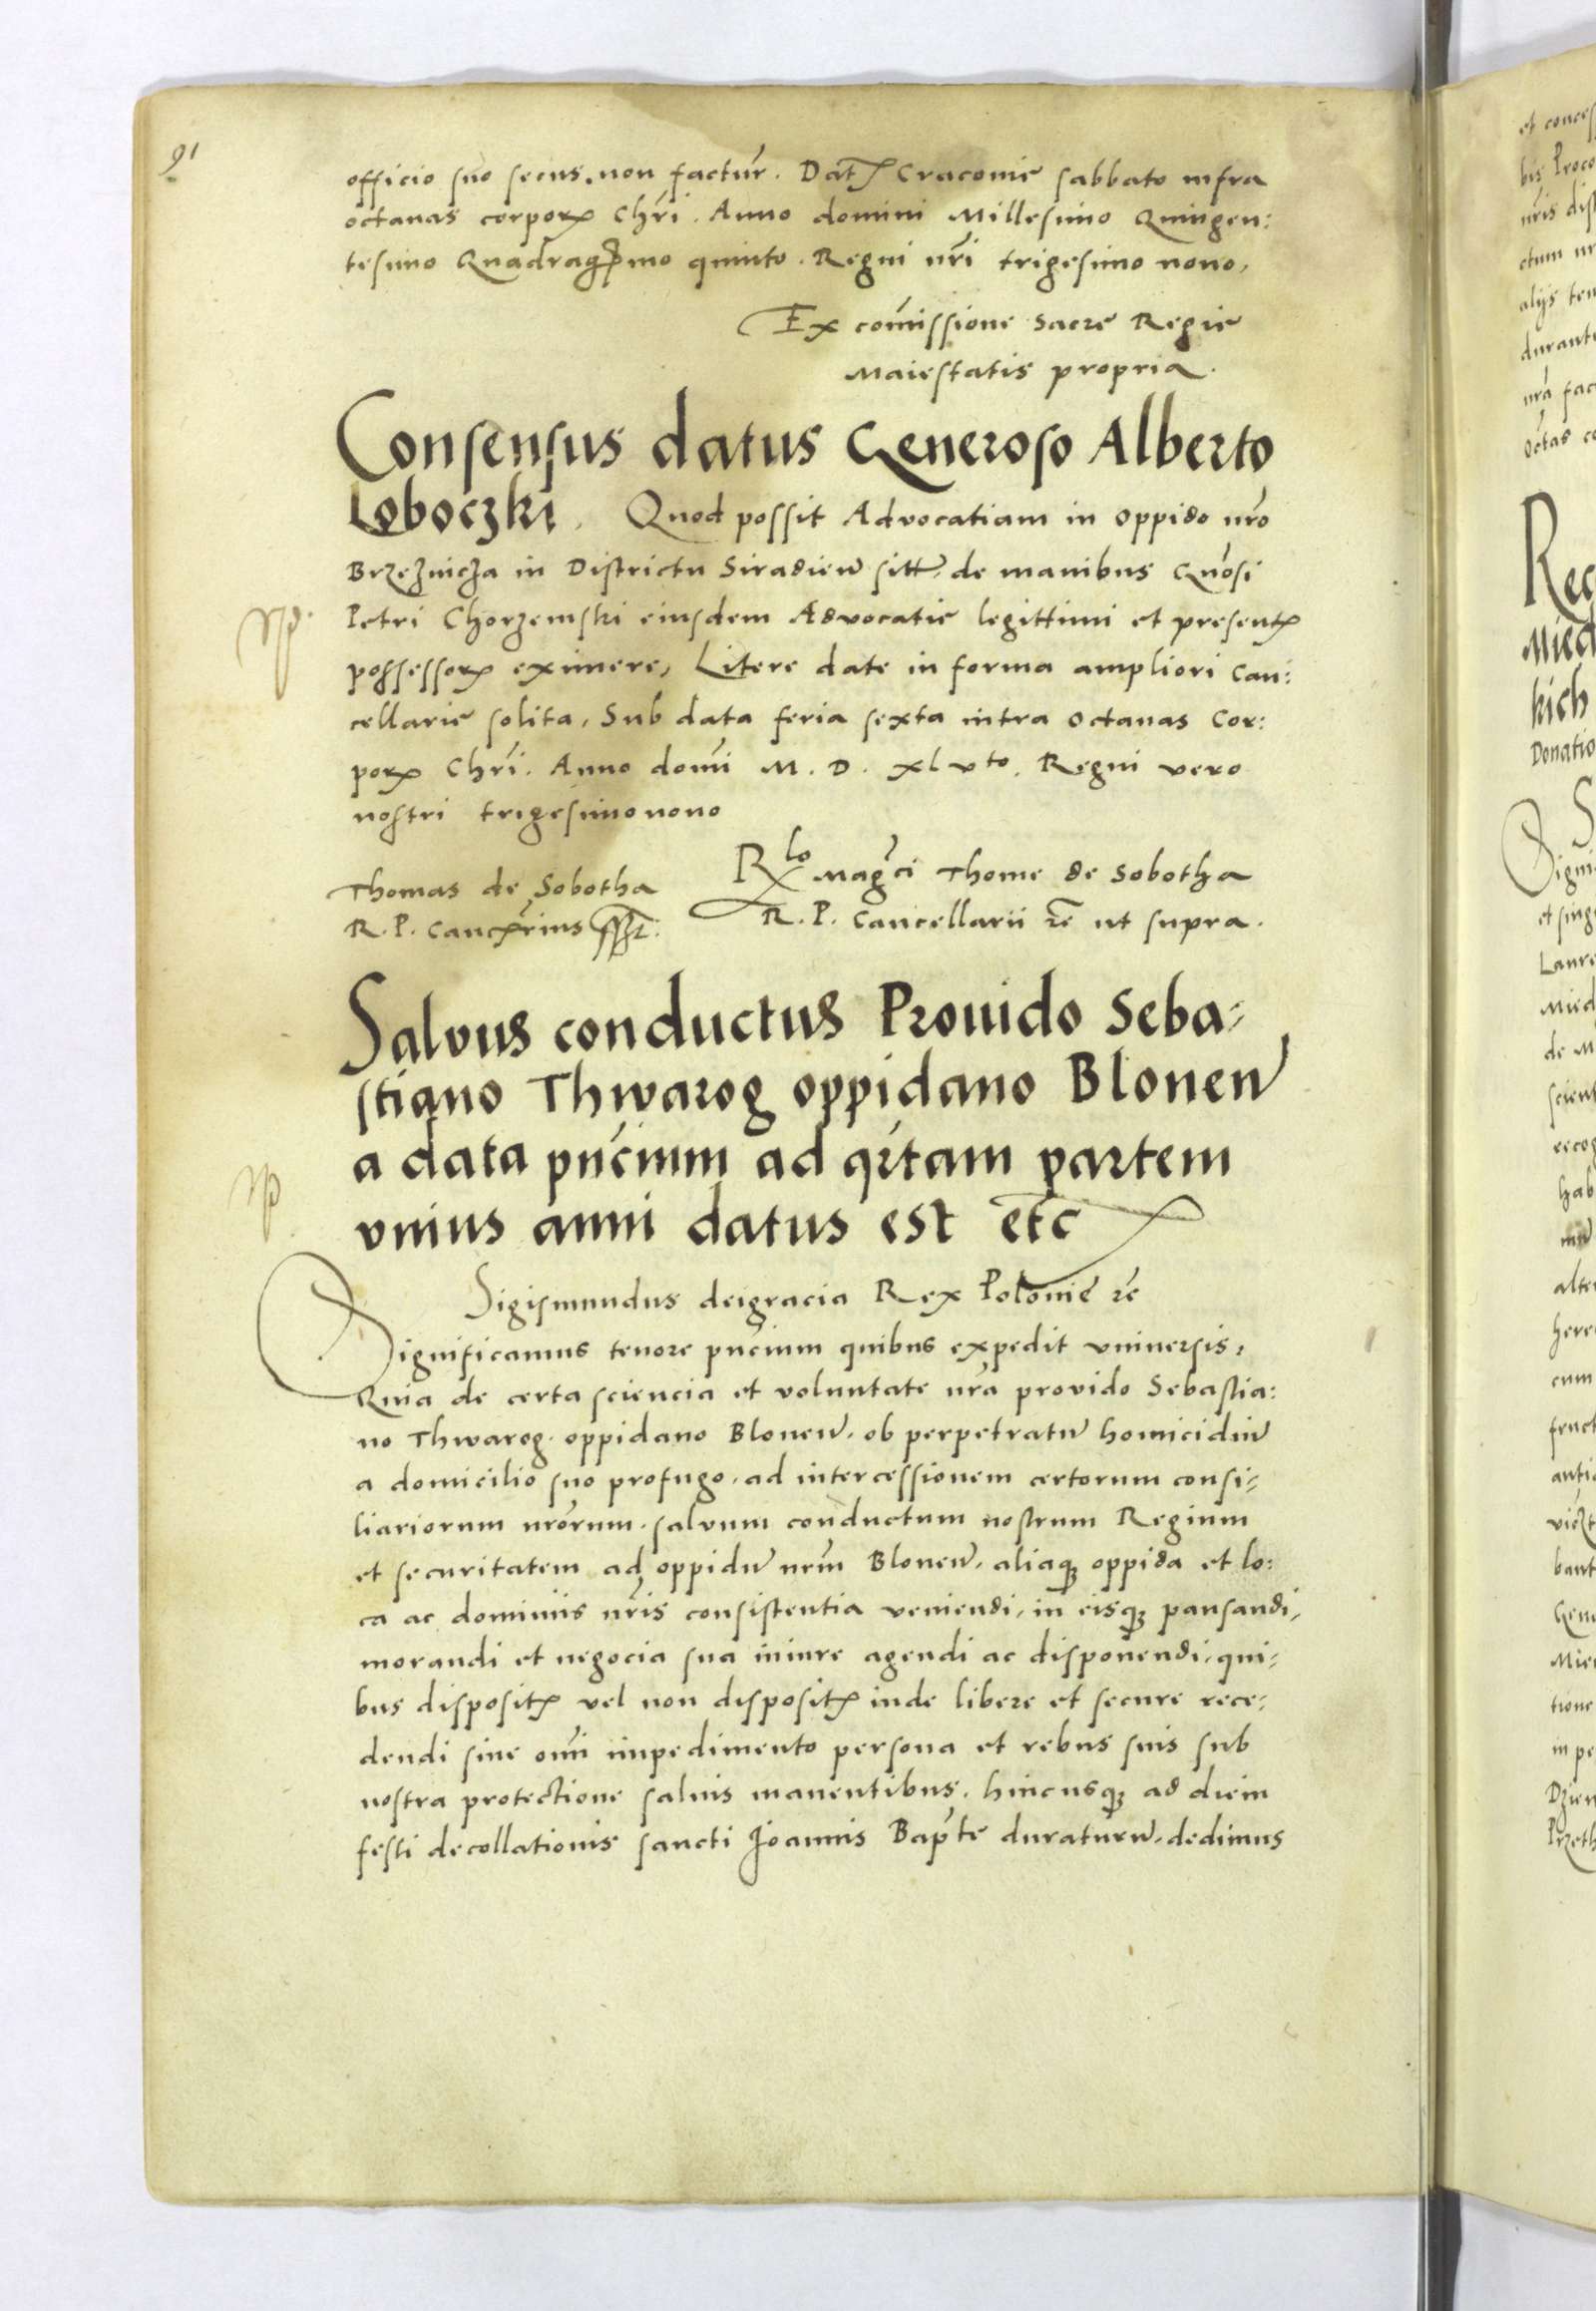 91
officio suo secus non factur̄. Datꝭ Cracovie sabbato infra
octavas corporꝭ Chr̄i. Anno domini Millesimo Quingen:
tesimo Quadragesimo quinto. Regni nr̄i trigesimo nono,
Ex com̄issione Sacre Regie
Maiestatis propria.
Consensus datus Generoso Alberto
Loboczki. Quod possit Advocatiam in oppido nr̄o
Brzeznicza in Districtu Siradien̄ sitt̄, de manibus Gn̄osi
Petri Chorzemski eiusdem Advocatie legittimi et presentꝭ
possessorꝭ eximere, Litere date in forma ampliori Can:
cellarie solita, Sub data feria sexta intra octavas Cor:
porꝭ Chr̄i. Anno domi M. D. xlvto. Regni vero
nostri trigesimonono
Thomas de Sobotha
R. P. Cancr̄ius sst.
Rlo Magci Thome de Sobotha
R. P. Cancellarii ꝛc̄ ut supra.
Salvus conductus Provido Seba-
stiano Thwarog oppidano Blonen̄
a data pn̄cium ad qrtam partem
vnius anni datus est etc̄
Sigismundus deigracia Rex Polonie ꝛc̄
Significamus tenore pn̄cium quibus expedit vniversis,
Quia de certa sciencia et voluntate nr̄a provido Sebastia:
no Thwarog oppidano Blonen̄, ob perpetratū homicidiū
a domicilio suo profugo, ad intercessionem certorum consi-
liariorum nr̄orum, salvum conductum nostrum Regium
et securitatem ad oppidū nrm̄ Blonen̄, aliaqꝫ oppida et lo:
ca ac dominiis nr̄is consistentia veniendi, in eisqꝫ pausandi,
morandi et negocia sua iniure agendi ac disponendi, qui-
bus dispositꝭ vel non dispositꝭ inde libere et secure rece-
dendi sine om̄i impedimento persona et rebus suis sub
nostra protectione salvis manentibus, hincusqꝫ ad diem
festi decollationis sancti Joannis Bapte duraturū, dedimus